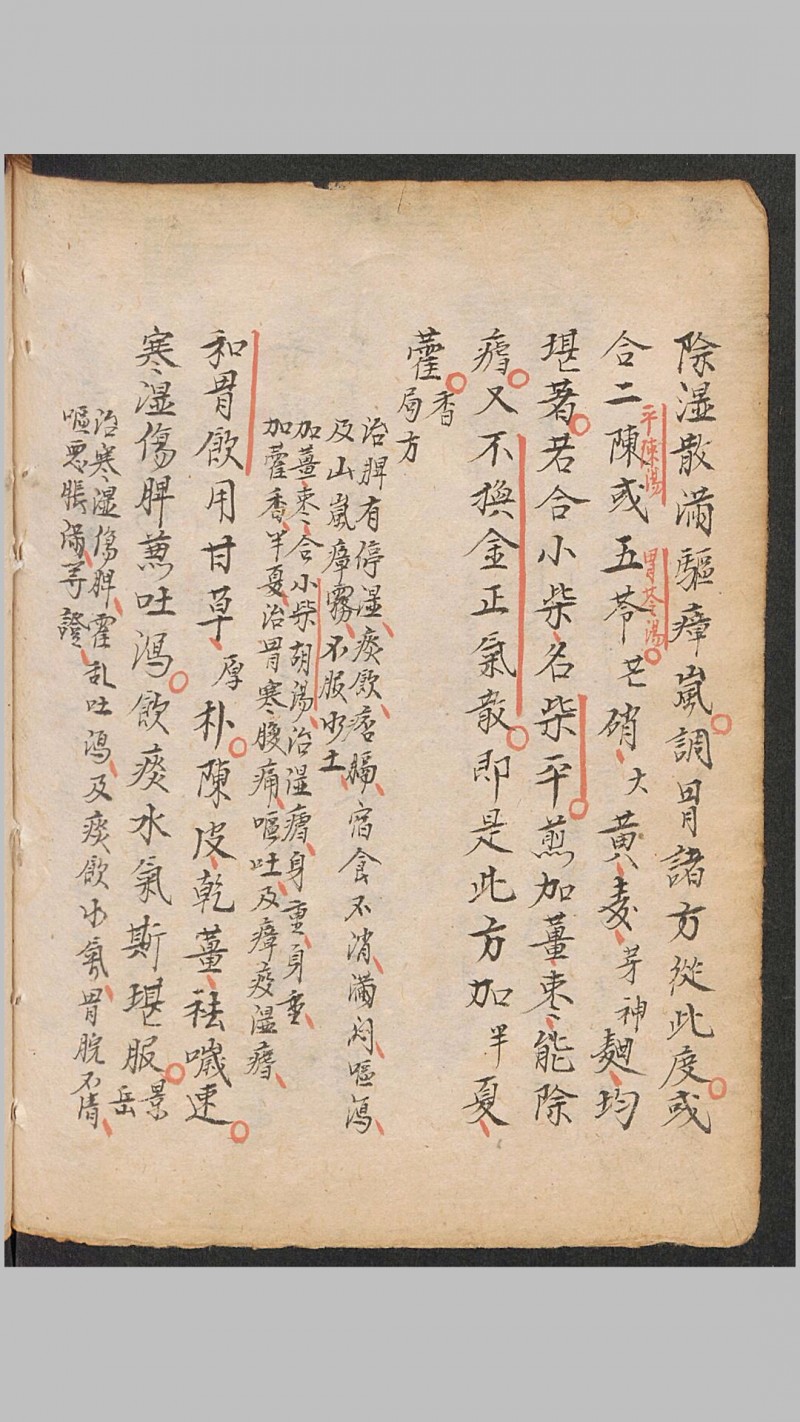 除湿散滿驅瘴嵐調胃諸方從此度或
合二陳或五苓芒硝大黄麦芽神麯均
平陳湯
胃苓湯
堪著若合小柴名柴平煎加薑枣能除
瘧又不換金正氣散即是此方加半夏
藿香
局方
治脾有停湿痰飲痞膈宿食不消滿悶嘔瀉
及山嵐瘴霧不服水土
加薑枣合小柴胡湯治湿瘧身重身重
加藿香半夏治胃寒腹痛嘔吐及瘴疫湿瘧
和胃飲用甘草厚朴陳皮乾薑祛嘰速
寒湿傷脾兼吐瀉飲痰水氣斯堪服景岳
治寒湿傷脾霍乱吐瀉及痰飲水氣胃脘不清
嘔悪脹滿等證